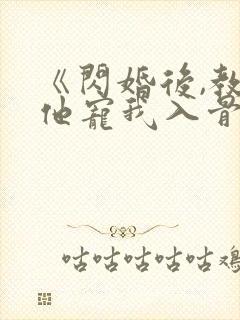 《閃婚後,教
他寵我入骨
咕咕咕咕咕雞